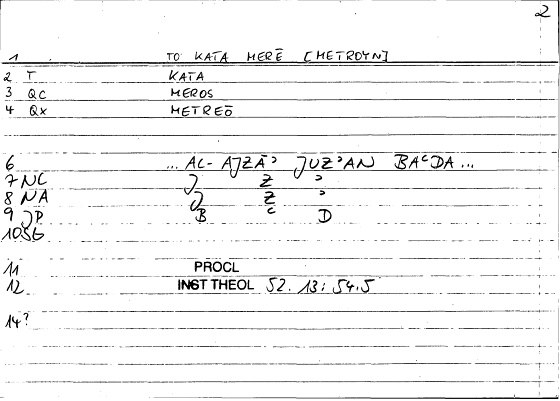 2
1 TO KATA MERĒ [METROYN]
2 T KATA
3 QC MEROS
4 QX METREŌ
6 ... AL- AJZĀʾ JUZʾAN BAʿDA ...
7 NC J Z ʾ
8 NA J Z ʾ
9 JP B ʿ D
10 SG
11 PROCL
12 INST THEOL 52.13; 54.5
14?